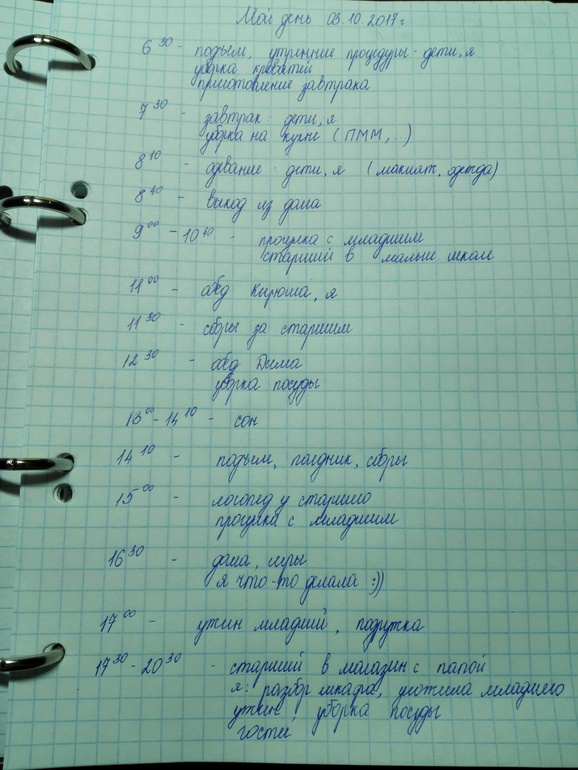 Мой день 03.10.2017г
6 30 - подъём, утренние процедуры - дети, я
уборка кроватей
приготовление завтрака
7 30 - завтрак: дети, я
уборка на кухне (ПММ, )
8 10 - одевание: дети, я (макияж, одежда)
8 40 - выход из дома
9 00 - 10 40 - прогулка с младшим
старший в малыш школ
11 00 - обед Кирюша, я
11 30 - сборы за старшим
12 30 - обед Дима
уборка посуды
13 00 - 14 10 - сон
14 10 - подъём, полдник, сборы
15 00 - логопед у старшего
прогулка с младшим
16 30 - дома, игры
я что-то делала :))
17 00 - ужин младший, подружка
17 30 - 20 30 - старший в магазин с папой
я: разбор шкафа, младшего
ужин, уборка посуды
гости